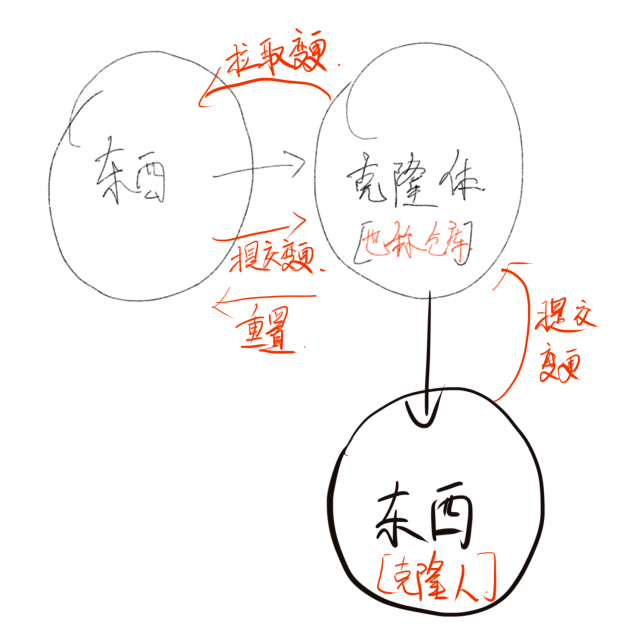 拉取变更.
东西
克隆体
[也称仓库]
提交变更.
重置.
提交
变更
东西
[克隆人]